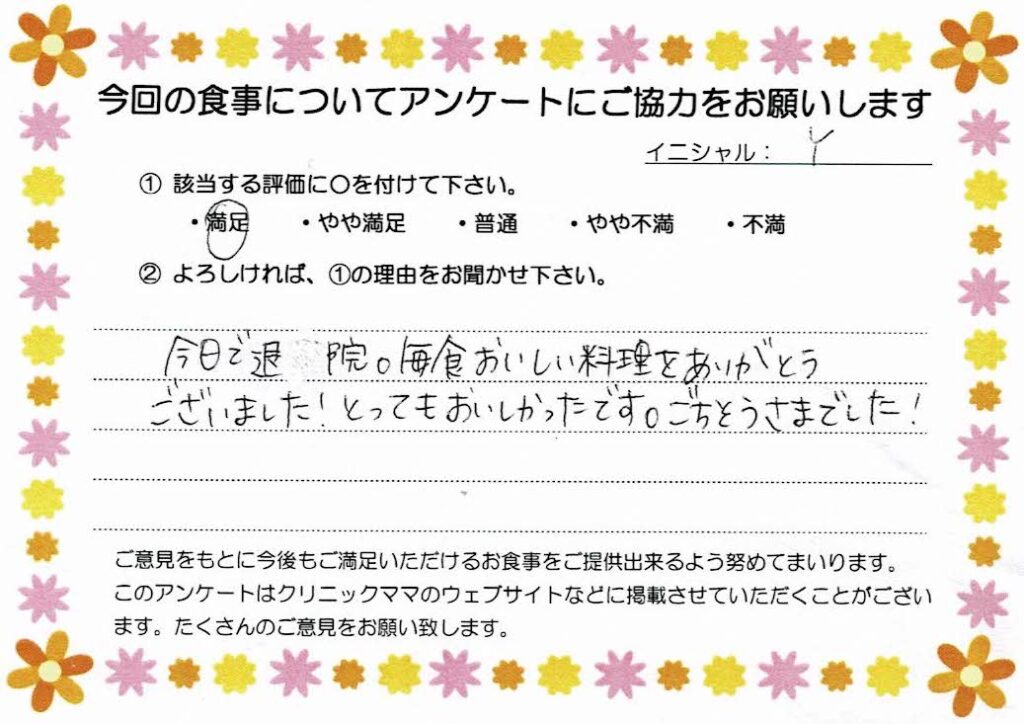 今回の食事についてアンケートにご協力をお願いします
イニシャル： Y
① 該当する評価に○を付けて下さい。
・満足 ・やや満足 ・普通 ・やや不満 ・不満
② よろしければ、①の理由をお聞かせ下さい。
今日で退院。毎食おいしい料理をありがとう
ございました！とってもおいしかったです。ごちそうさまでした！
ご意見をもとに今後もご満足いただけるお食事をご提供出来るよう努めてまいります。
このアンケートはクリニックママのウェブサイトなどに掲載させていただくことがござい
ます。たくさんのご意見をお願い致します。